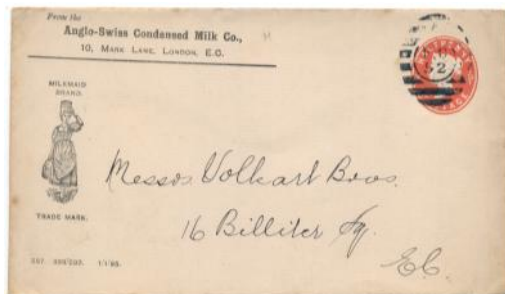 From the
Anglo-Swiss Condensed Milk Co.,
10, Mark Lane, London, E.C.
MILKMAID
BRAND.
TRADE MARK.
Messrs. Volkart Bros.
16 Billiter Sq.
E.C.